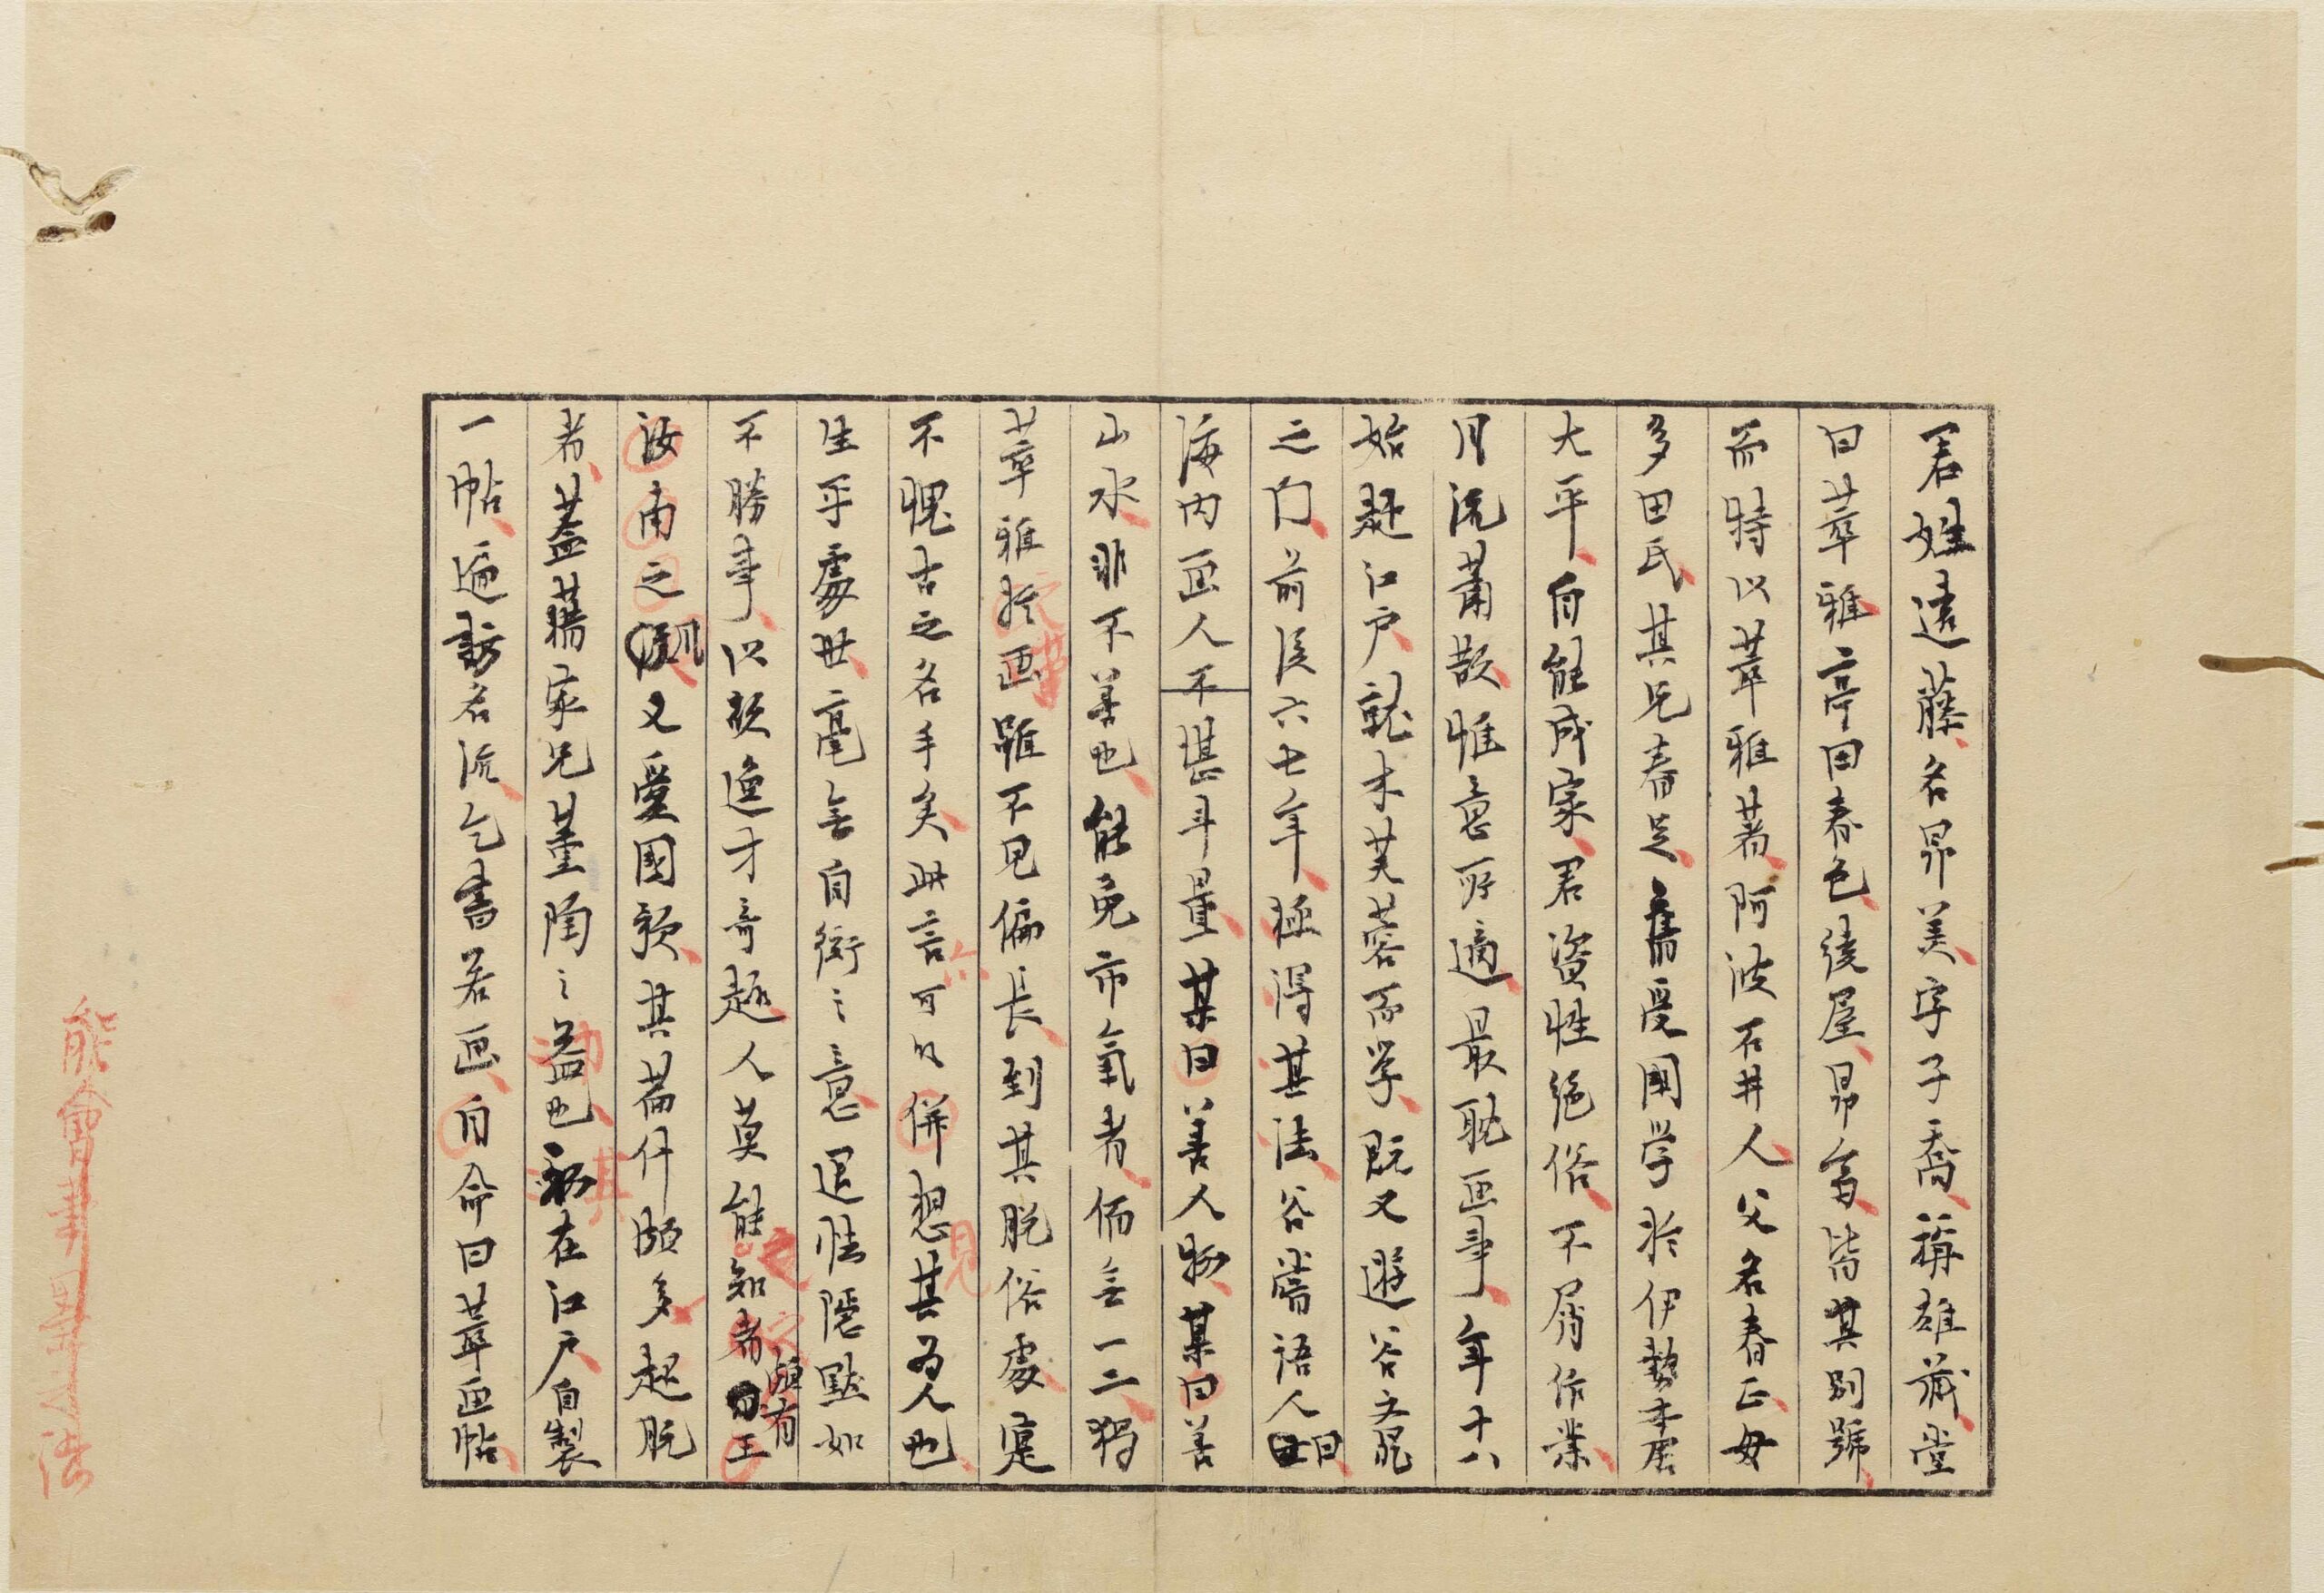 君姓遠藤名昂美字子喬稱雄藏堂
曰萃雅亭田春色後屋昂斎皆其別號
而特以萃雅著阿波石井人父名春正母
多田氏其兄春足舊受國学於伊勢本居
大平自能成家君資性絶俗不屑作業
日沉蕭散惟意所適最耽画事年十八
始赴江戸就木芙蓉而学既又遊谷文晁
之门前後六七年極得其法谷嘗語人曰
海内画人不堪斗量某曰善人物某曰善
山水非不善也能免市氣者僅無一二獨
萃雅於画雖不見偏長到其脱俗處寔
不愧古之名手矣此言可以併想其為人也
生乎處世毫無自衒之意退怯隱默如
不勝事以故逸才奇趣人莫能知者頗有王
汝南之風又愛國歌其篇什頗多超脱
者蓋藉家兄薫陶之益也在江戸自製
一帖遍訪名流乞書若画自命曰萃画帖
能